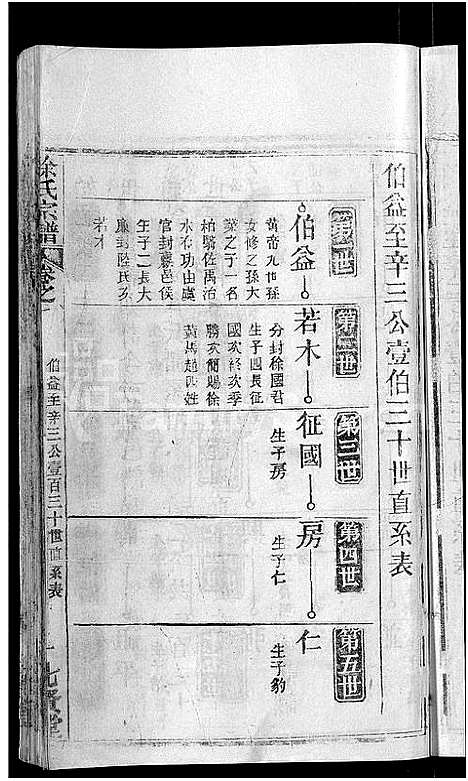 伯益至辛三公壹伯三十世直系表
第一世
伯益
黃帝九世孫
女修之孫大
業之子一名
柏翳佐禹治
水有功由虞
官封嬴邑侯
生子二長大
廉封嬴氏次
若木
第二世
若木
分封徐國君
生子四長征
國次終次季
勝次簡賜徐
黃馬趙四姓
第三世
征國
生子房
第四世
房
生子仁
第五世
仁
生子豹
徐氏宗譜
卷之
伯益至辛三公壹百三十世直系表